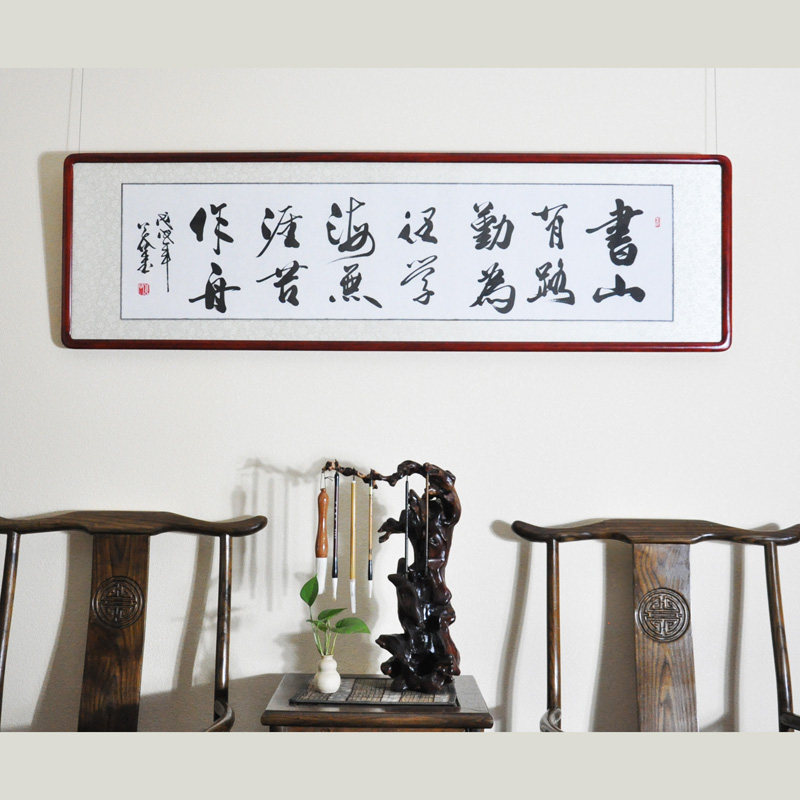 書山
有路
勤為
径学
海無
涯苦
作舟
戊戌年